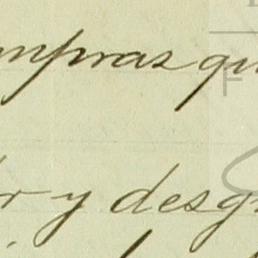 mpras qu
r y desg